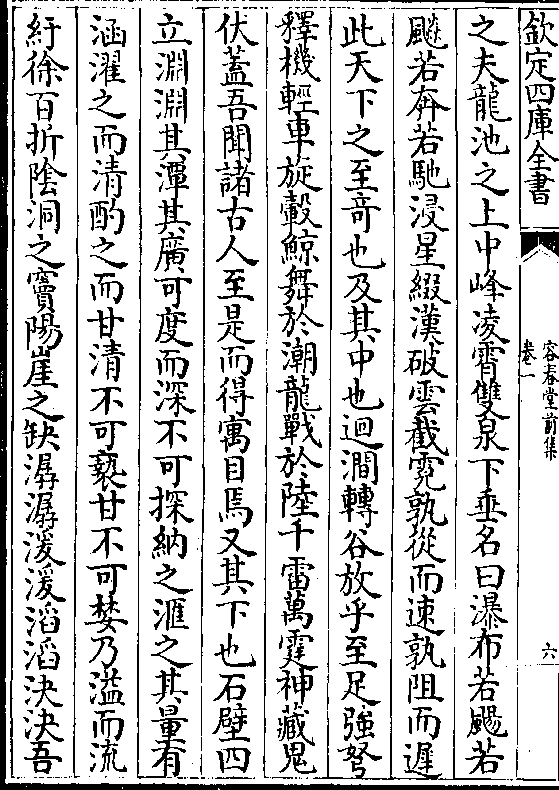 欽定四庫全書
容春堂前集
卷一
六
之夫龍池之上中峰凌霄雙泉下垂名曰瀑布若颺若
飈若奔若馳浸星綴漢破雲截霓孰從而速孰阻而遲
此天下之至奇也及其中也迴澗轉谷放乎至足強弩
釋機輕車旋轂鯨舞於潮龍戰於陸千雷萬霆神藏鬼
伏蓋吾聞諸古人至是而得寓目焉又其下也石壁四
立淵淵其潭其廣可度而深不可探納之滙之其量有
涵濯之而清酌之而甘清不可褻甘不可婪乃溢而流
紆徐百折陰洞之竇陽崖之缺潺潺湲湲滔滔決決吾